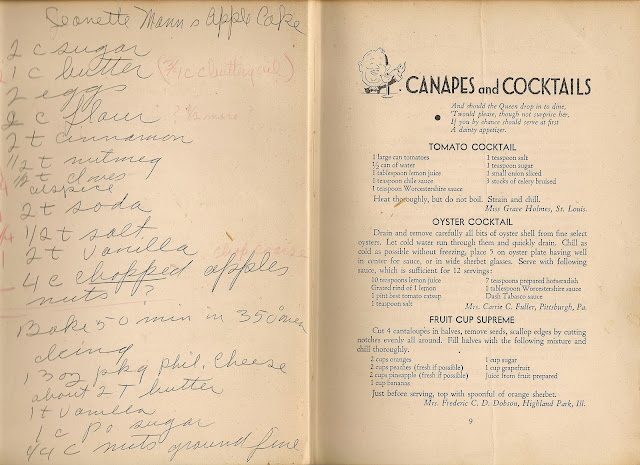 Jeanette Mann s Apple Cake
2 c sugar
1 c butter
2 eggs
2 c flour
2 t cinnamon
1/2 t nutmeg
1/2 t cloves
alspice
2 t soda
1/2 t salt
2 t vanilla
4 c chopped apples
nuts ?
Bake 50 min in 350 oven
Icing
1 3 oz pkg Phil. Cheese
about 2 T butter
1 t vanilla
1 c po sugar
c nuts ground fine
CANAPES and COCKTAILS
And should the Queen drop in to dine,
'Twould please, though not surprise her,
If you by chance should serve at first
A dainty appetizer.
TOMATO COCKTAIL
1 large can tomatoes
½ can of water
1 tablespoon lemon juice
1 teaspoon chile sauce
1 teaspoon Worcestershire sauce
1 teaspoon salt
1 teaspoon sugar
1 small onion sliced
3 stocks of celery bruised
Heat thoroughly, but do not boil. Strain and chill.
Miss Grace Holmes, St. Louis.
OYSTER COCKTAIL
Drain and remove carefully all bits of oyster shell from fine select
oysters. Let cold water run through them and quickly drain. Chill as
cold as possible without freezing, place 5 on oyster plate having well
in center for sauce, or in wide sherbet glasses. Serve with following
sauce, which is sufficient for 12 servings:
10 teaspoons lemon juice
Grated rind of 1 lemon
1 pint best tomato catsup
1 teaspoon salt
7 teaspoons prepared horseradish
1 tablespoon Worcestershire sauce
Dash Tabasco sauce
Mrs. Carrie C. Fuller, Pittsburgh, Pa.
FRUIT CUP SUPREME
Cut 4 cantaloupes in halves, remove seeds, scallop edges by cutting
notches evenly all around. Fill halves with the following mixture and
chill thoroughly.
2 cups oranges
2 cups peaches (fresh if possible)
2 cups pineapple (fresh if possible)
1 cup bananas
1 cup sugar
1 cup grapefruit
Juice from fruit prepared
Just before serving, top with spoonful of orange sherbet.
Mrs. Frederic C. D. Dobson, Highland Park, Ill.
9